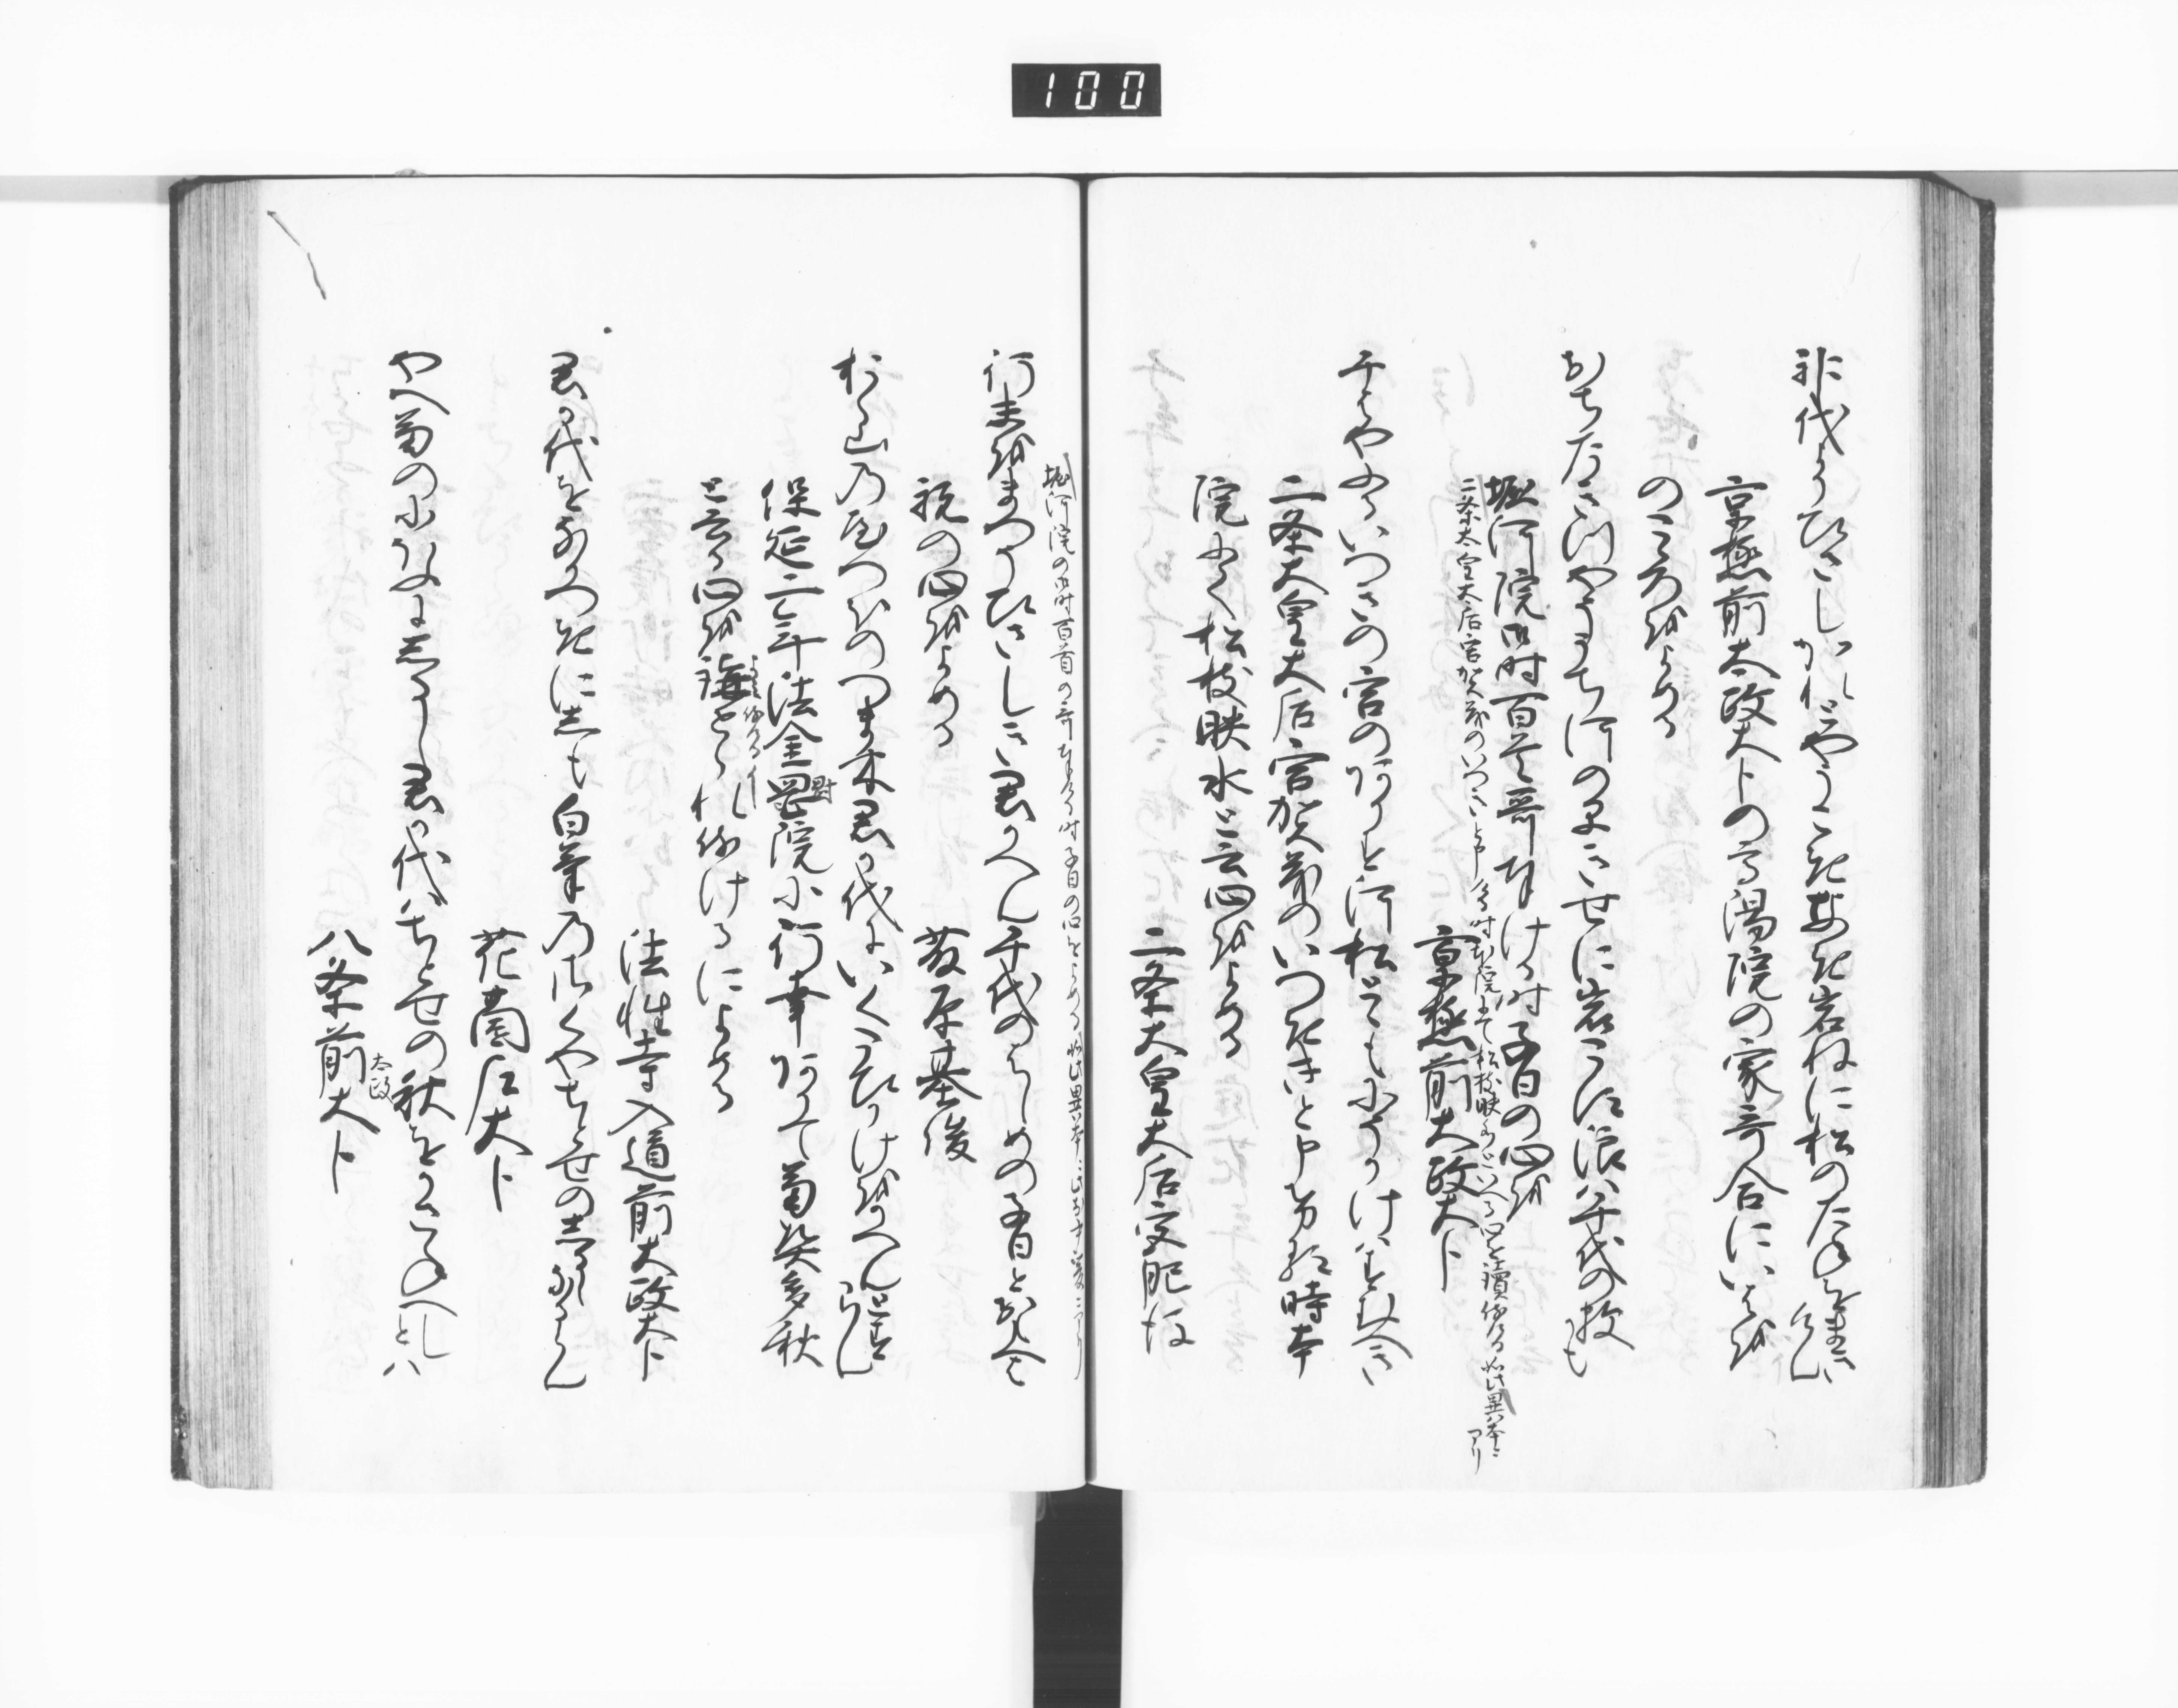 100
神代よりひさしかれとやうこきなき岩ねに松のたねをまきけん
京極前太政大臣の高陽院の家哥合にいはゐ
のこゝろをよめる
おちたきつやそうち河のはやきせに岩こす浪は千代の数かも
堀河院御時百首哥奉ける時子日の心を
二条太皇太后宮賀茂のいつきと申ける時本院にて松枝映水といへる心を讀侍ける如此異本ニアリ
京極前太政大臣
千はやふるいつきの宮のありす河松とゝもにそかけはすむへき
二条大皇大后宮賀茂のいつききと申給ける時本
院にて松枝映水と云心をよめる
二条大皇大后宮肥後
堀河院の御時百首の哥奉ける時子日の心をよめる如此異本ニ
行末をまつそひさしき君かへん千代のはしめの子日とおもへは
祝の心をよめる
藤原基俊
おく山乃やつをのつま木君か代にいくたひかけをかへんとすらん
保延二年法金剛院に行幸ありて菊契多秋
と云る心を講せられ侍けるによめる
法性寺入道前太政大臣
君か代をなかつきにしも白菊乃さくやちとせのしるしなるらん
花園左大臣
やへ菊のにほひにしるし君か代はちとせの秋をかさぬへしとは
八条前太政大臣